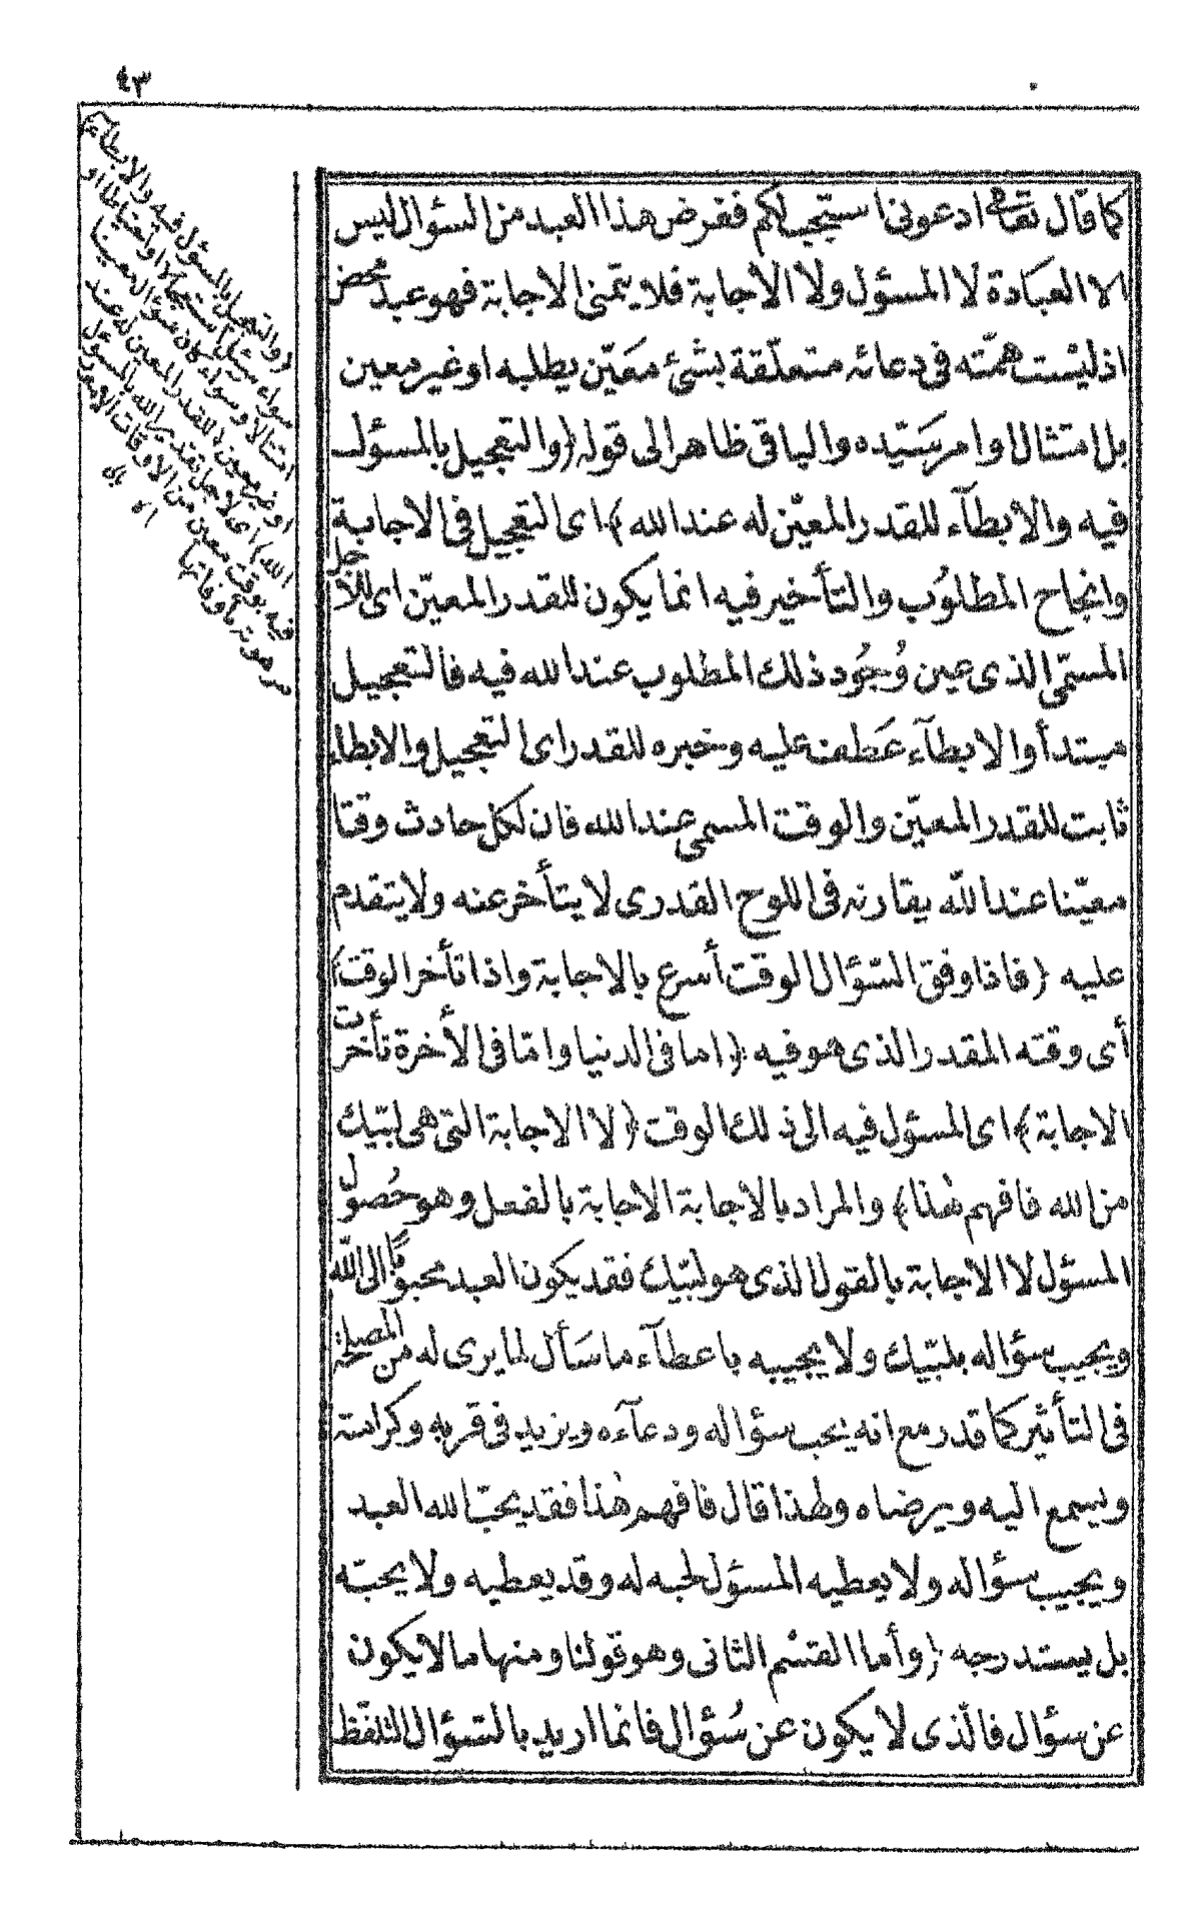 ٤٣
كما قال تعالى ادعونى استجب لكم فغرض هذا العبد من السؤال ليس
الا العبادة لا المسؤل ولا الاجابة فلا يتمنى الاجابة فهو عبد محض
اذ ليست همّته فى دعائه متعلّقة بشئ معَيّن يطلبه او غير معين
بل امتثال اوامر سَيّده والباقى ظاهر الى قوله ﴿والتعجيل بالمسؤل
فيه والابطآء للقدر المعيّن له عند الله﴾ اى التعجيل فى الاجابة
وانجاح المطلوُب والتأخير فيه انما يكون للقدر المعيّن اى للاجل
المسمّى الذى عين وُجُود ذلك المطلوب عند الله فيه فالتعجيل
مبتدأ والابطآء عَطف عليه وخبره للقدر اى التعجيل والابطاء
ثابت للقدر المعيّن والوقت المسمى عند الله فان لكل حادث وقتا
معيّنا عند الله يقارنه فى اللوح القدرى لا يتأخر عنه ولا يتقدم
عليه ﴿فاذا وفق السّؤال الوقت أسرع بالاجابة واذا تأخر الوقت﴾
أى وقته المقدر الذى هو فيه ﴿اما فى الدنيا وامّا فى الأخرة تأخرت
الاجابة﴾ اى المسؤل فيه الى ذلك الوقت ﴿لا الاجابة التى هى لبّيك
من الله فافهم هٰذا﴾ والمراد بالاجابة الاجابة بالفعل وهو حُصول
المسؤل لا الاجابة بالقول الذى هو لبّيك فقد يكون العبد محبوبًا الى الله
ويجيب سؤاله بلبّيك ولا يجيبه باعطآء ما سَأل لما يرى له من المصلحة
فى التأثير كما قدر مع انه يحب سؤاله ودعآءه ويزيد فى قربه وكرامته
ويسمع اليه ويرضاه ولهذا قال فافهم هٰذا فقد يحبّ الله العبد
ويجيب سؤاله ولا يعطيه المسؤل لحبه له وقد يعطيه ولا يحبّه
بل يستدرجه ﴿وأما القسْم الثانى وهو قولنا ومنها ما لا يكون
عن سؤال فالّذى لا يكون عن سُؤال فانما اريد بالسّؤال التلفّظ
(والتعجيل بالمسؤل فيه والابطآء)
امتثالا وسواء كان سؤال معين
او غير معين (للقدر المعين له عند
الله) اى لاجل تقدير الله بالمسؤل
فيه بوقت معين من الاوقات
مرهونة بأوقاتها